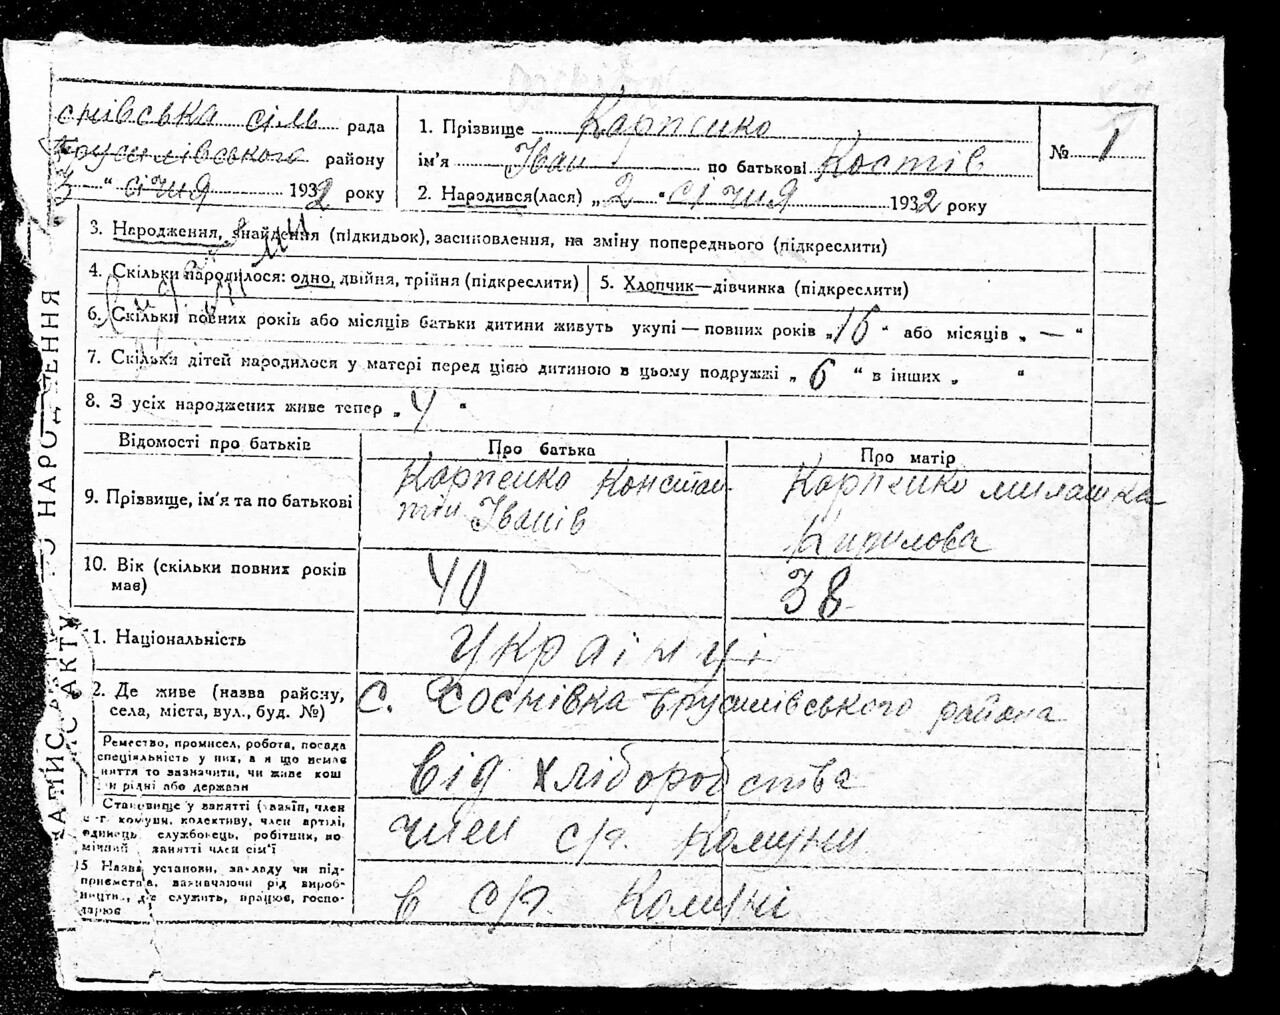 снівська сіль рада
Брусилівського району
3 " січня 1932 року
1. Прізвище Карпенко
ім'я Іван по батькові Костів
2. Народився(лася) „ 2 " січня 1932 року
№ 1
3. Народження, знайдення (підкидьок), засиновлення, на зміну попереднього (підкреслити)
4. Скільки народилося: одно, двійня, трійня (підкреслити)
5. Хлопчик—дівчинка (підкреслити)
6. Скільки повних років або місяців батьки дитини живуть укупі — повних років „ 16 " або місяців „ — "
7. Скільки дітей народилося у матері перед цією дитиною в цьому подружжі „ 6 " в інших „ "
8. З усіх народжених живе тепер „ 4 "
Відомості про батьків
Про батька
Про матір
9. Прізвище, ім'я та по батькові
Карпенко Констан-
тин Іванів
Карпенко милашка
Кирилова
10. Вік (скільки повних років
має)
40
38
1. Національність
Українці
2. Де живе (назва району,
села, міста, вул., буд. №)
с. Соснівка Брусилівського района
Ремество, промисел, робота, посада
спеціяльність у них, а як що немає
няття то зазначити, чи живе кош
и рідні або держави
від хліборобства
Становище у занятті (
г. комуни, колективу, член артілі,
одинець службовець, робітник, по
занятті член сім'ї
член с/г. комуни
15 Назва установи, закладу чи під-
приємства, зазначаючи рід вироб-
ництв., де служить, працює, госпо-
дарює
в с/г. комуні
НАРОДЖЕННЯ
ЗАПИС АКТУ